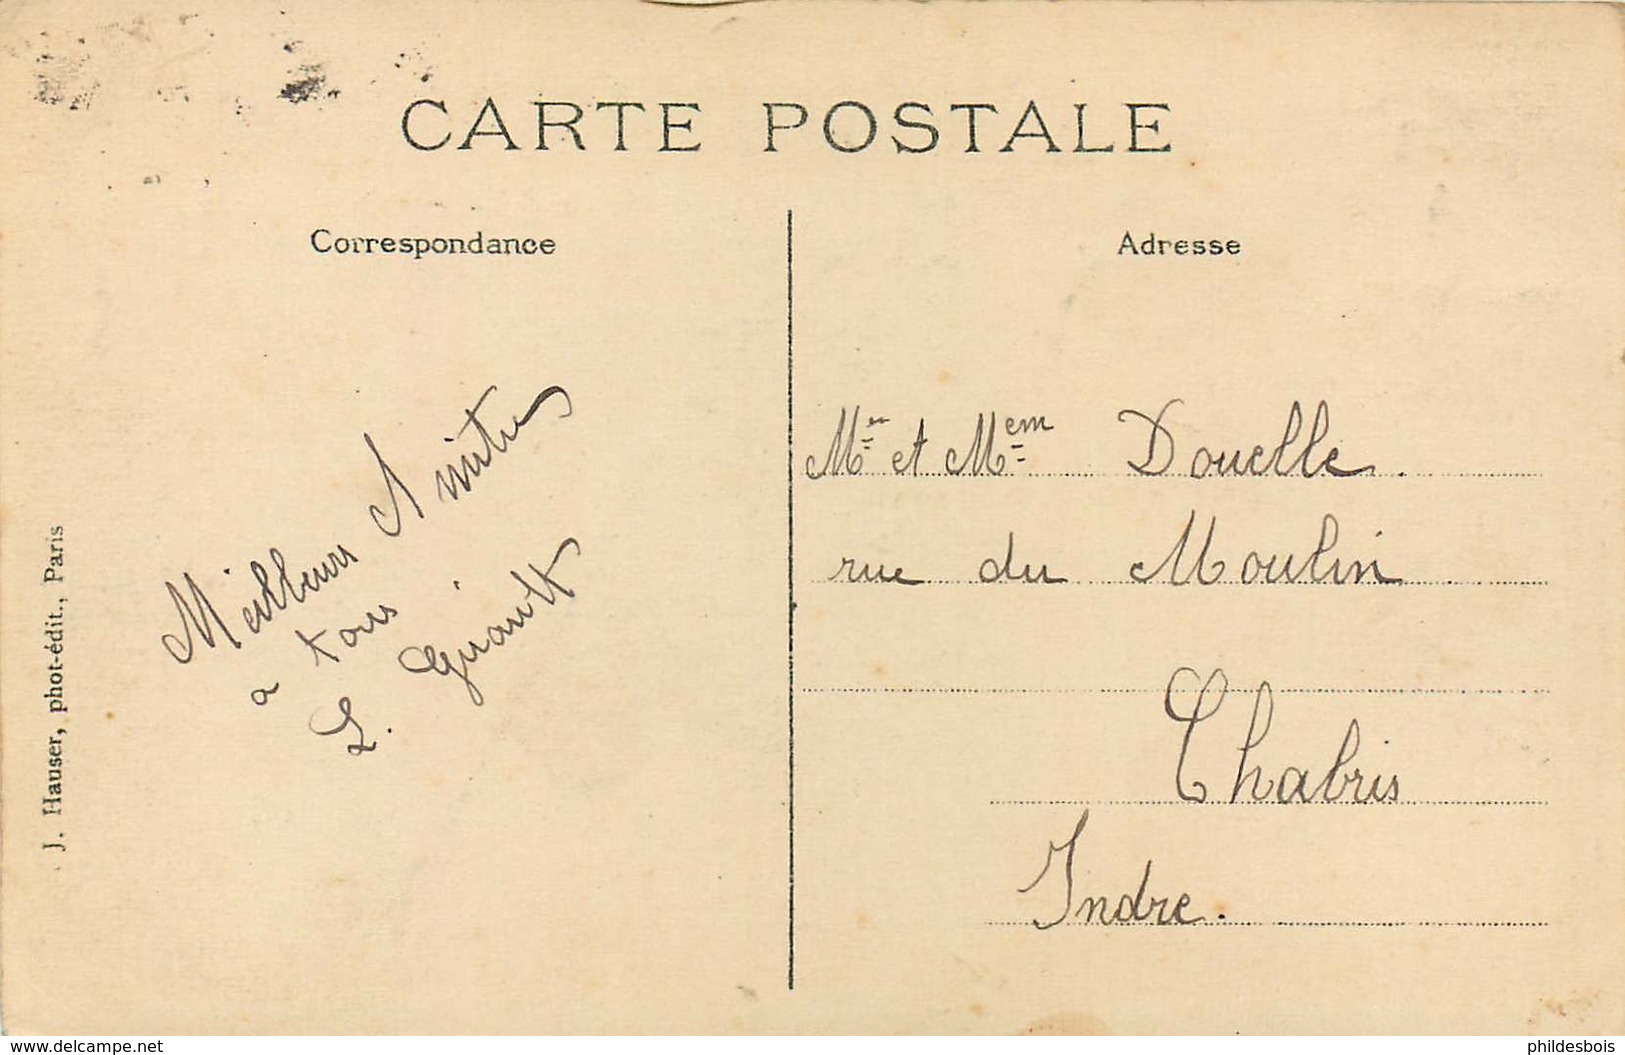 CARTE POSTALE
Correspondance
Adresse
Meilleurs Amitiés
a tous
L. Girault
Mr et Mem Douelle
rue du Moulin
Chabris
Indre.
J. Hauser, phot-édit., Paris
www.delcampe.net
phildesbois